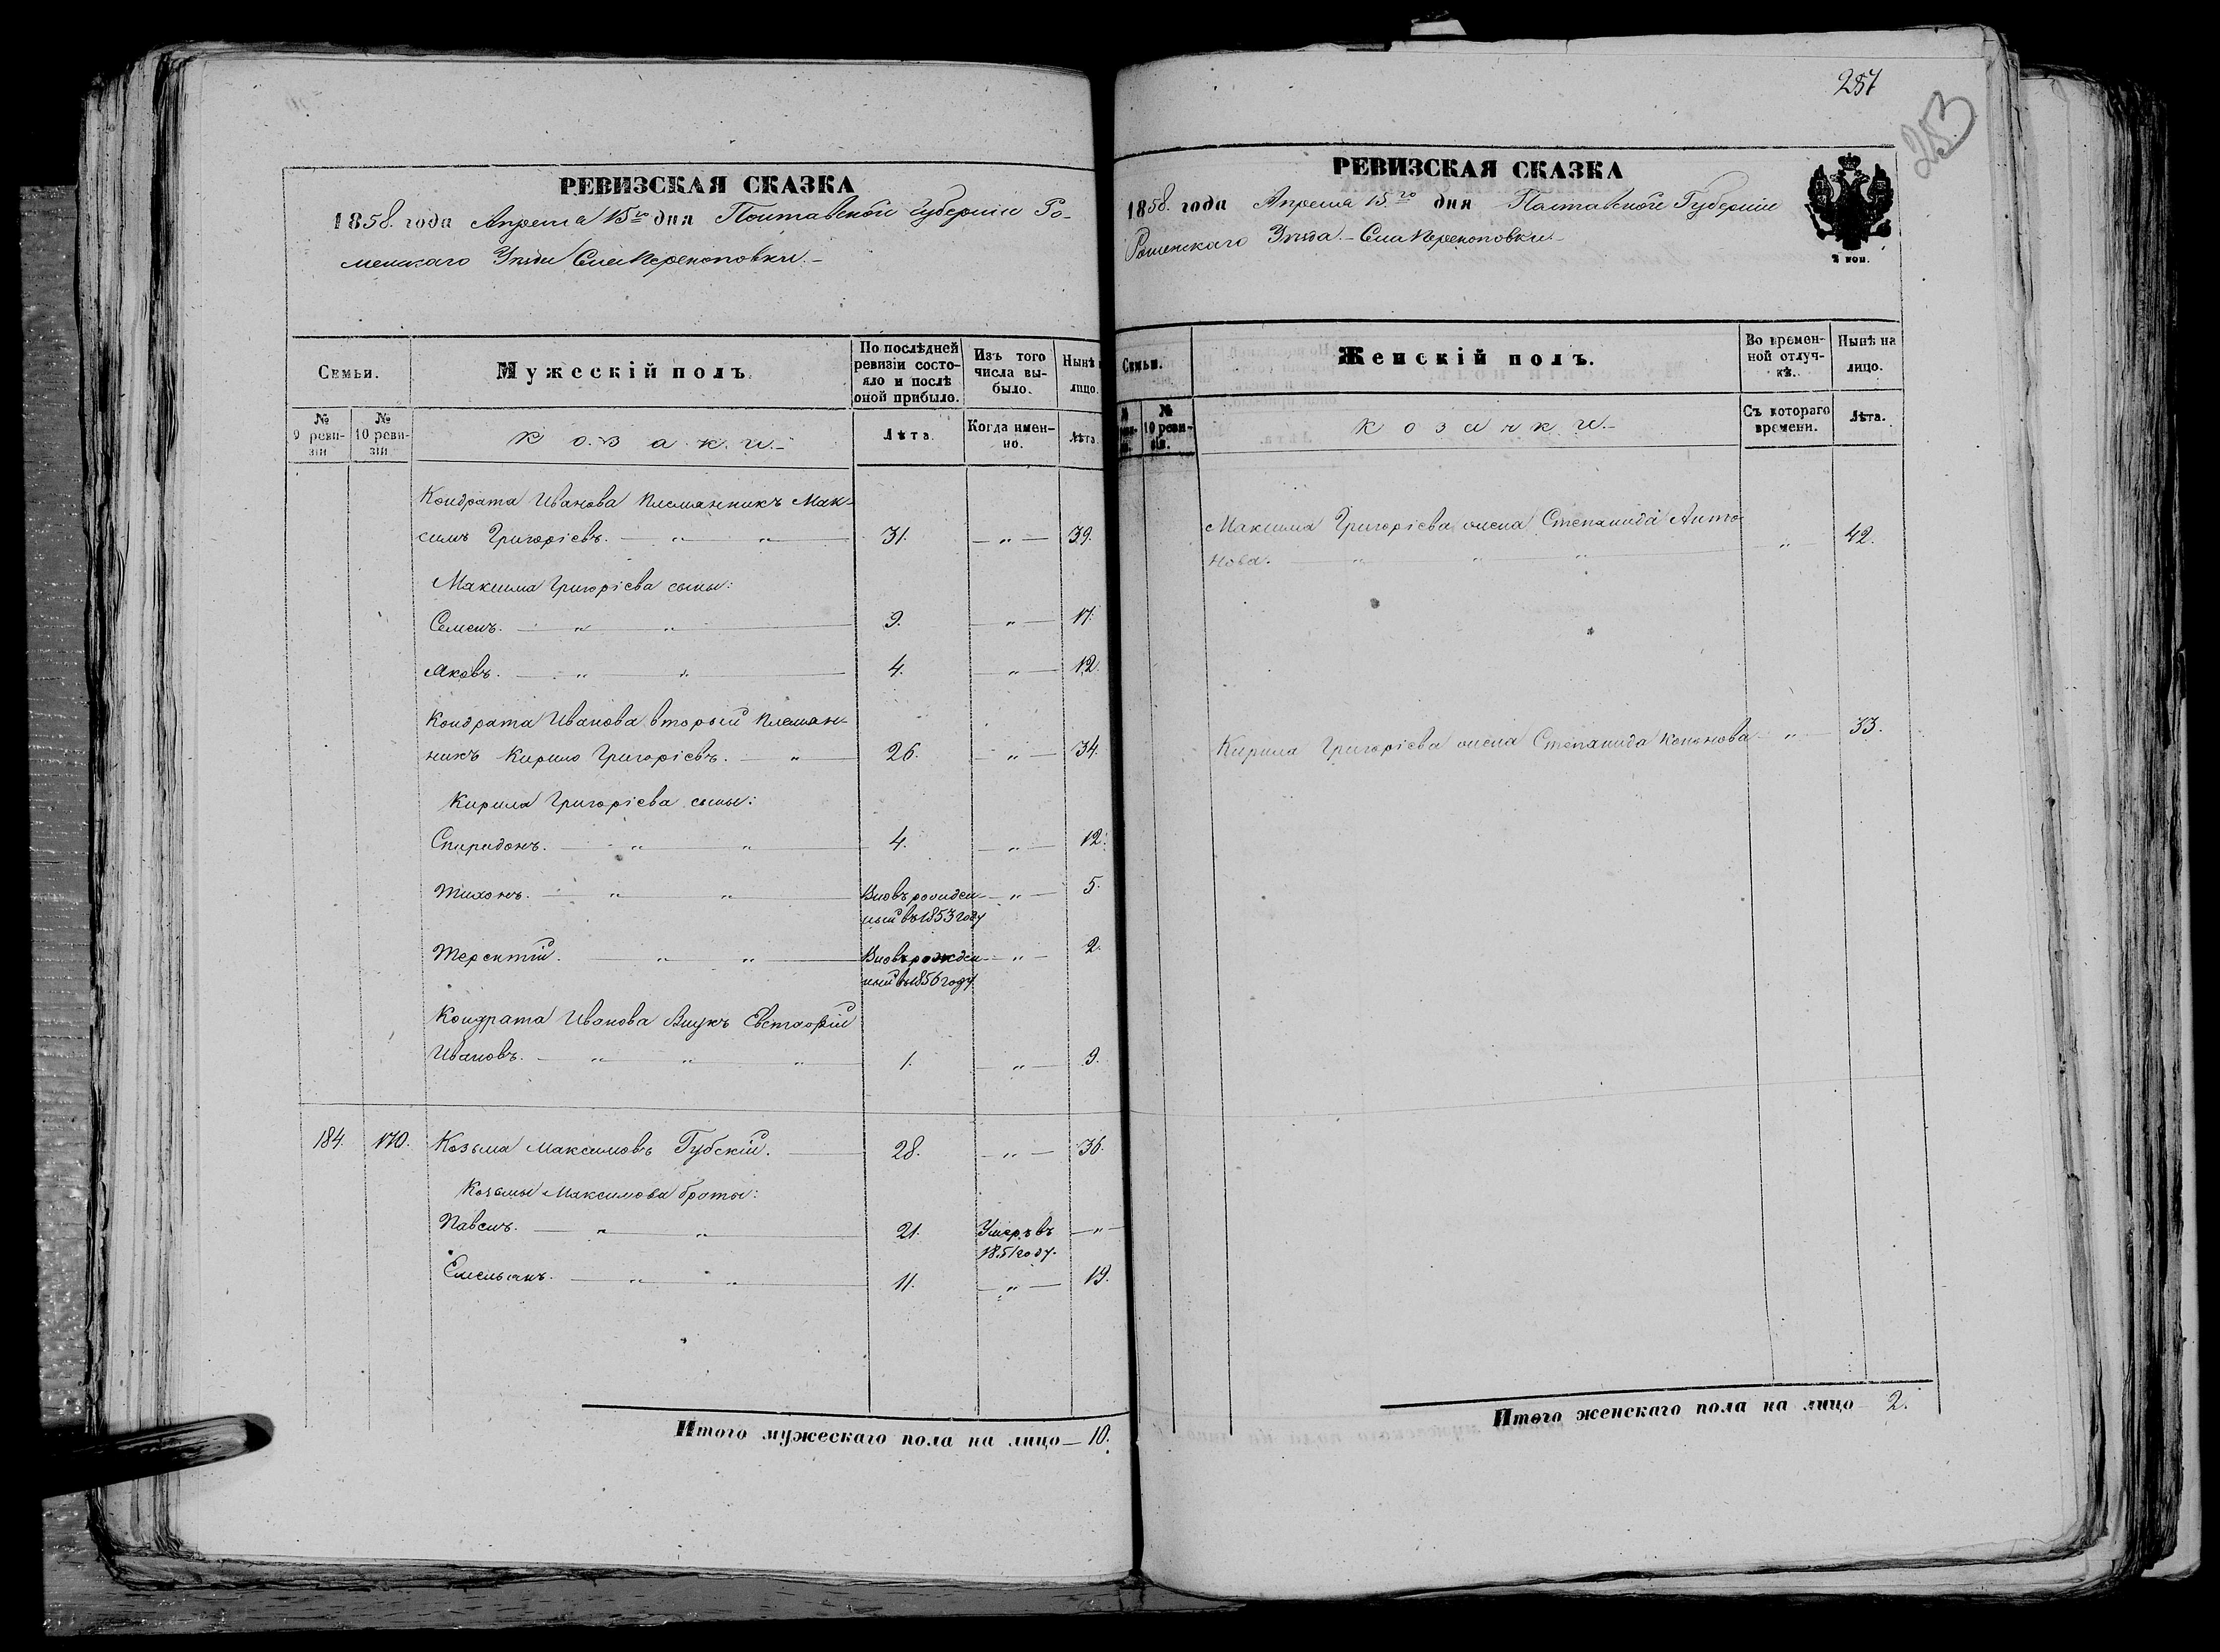 РЕВИЗСКАЯ СКАЗКА
1858. года Апреля 15го дня Полтавской Губернии Ро-
менскаго Уезда Села Перекоповки.-
Семьи.
Мужескій полъ.
По послѣдней ревизіи состояло и послѣ оной прибыло.
Изъ того числа выбыло.
Нынѣ
лицо.
№ 9 ревизіи
№ 10 ревизіи
козаки.-
Лѣта.
Когда именно.
Лѣта
Кондрата Иванова Племянникъ Мак-
симъ Григоріевъ. — " — " — 31. — " — 39.
Максима Григоріева сыны:
Семенъ. — " — " — 9. — " — 17.
Яковъ. — " — " — 4. — " — 12.
Кондрата Иванова второй Племян-
никъ Кирило Григоріевъ. — " — 26. — " — 34.
Кирила Григоріева сыны:
Спиридонъ. — " — " — 4. — " — 12.
Тихонъ. — " — " — Вновьрожден- — " — 5.
ный въ 1853 году
Терентій. — " — " — Вновьрожден- — " — 2.
ный въ 1856 году.
Кондрата Иванова Внукъ Евстафій
Ивановъ. — " — " — " — 1. — " — 9.
184. 170. Козьма Максимовъ Губскій. — 28. — " — 36.
Козьмы Максимова браты:
Павелъ. — " — " — 21. Умеръ въ — " —
1851 году.
Емельянъ. — " — " — 11. — " — 19.
Итого мужескаго пола на лицо — 10.
257
253
РЕВИЗСКАЯ СКАЗКА
1858. года Апреля 15.го дня Полтавской Губерніи
Роменскаго Уезда.- Села Перекоповки.-
2 коп.
Семьи.
Женскій полъ.
Во временной отлучкѣ.
Нынѣ на лицо.
№
№ 10 ревизіи.
козачки.-
Съ котораго времени.
Лѣта.
Максима Григоріева жена Степанида Анто-
нова. — " — " — " — " 42.
Кирила Григоріева жена Степанида Кононова — " — 33.
Итого женскаго пола на лицо — 2.